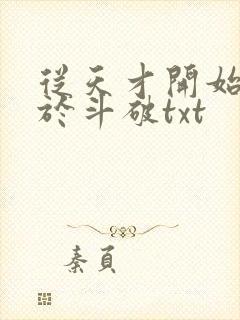 從天才開始
於斗破txt
秦頁